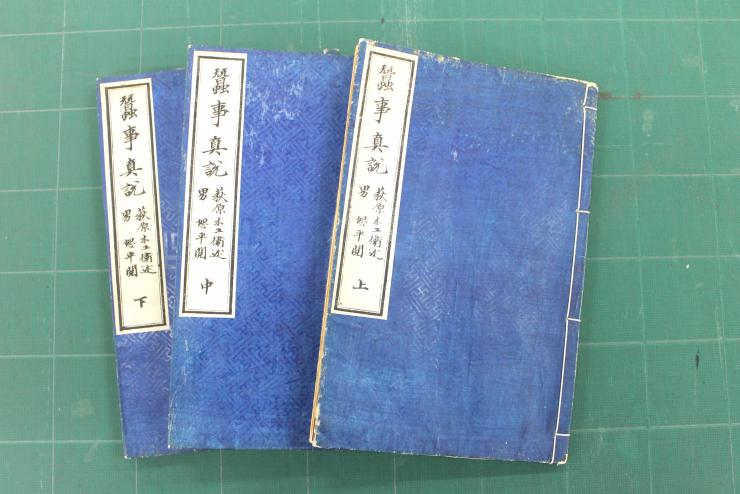 蠶事真説
荻原木工衛述
男 堽平閲
上
蠶事真説
荻原木工衛述
男 堽平閲
中
蠶事真説
荻原木工衛述
男 堽平閲
下